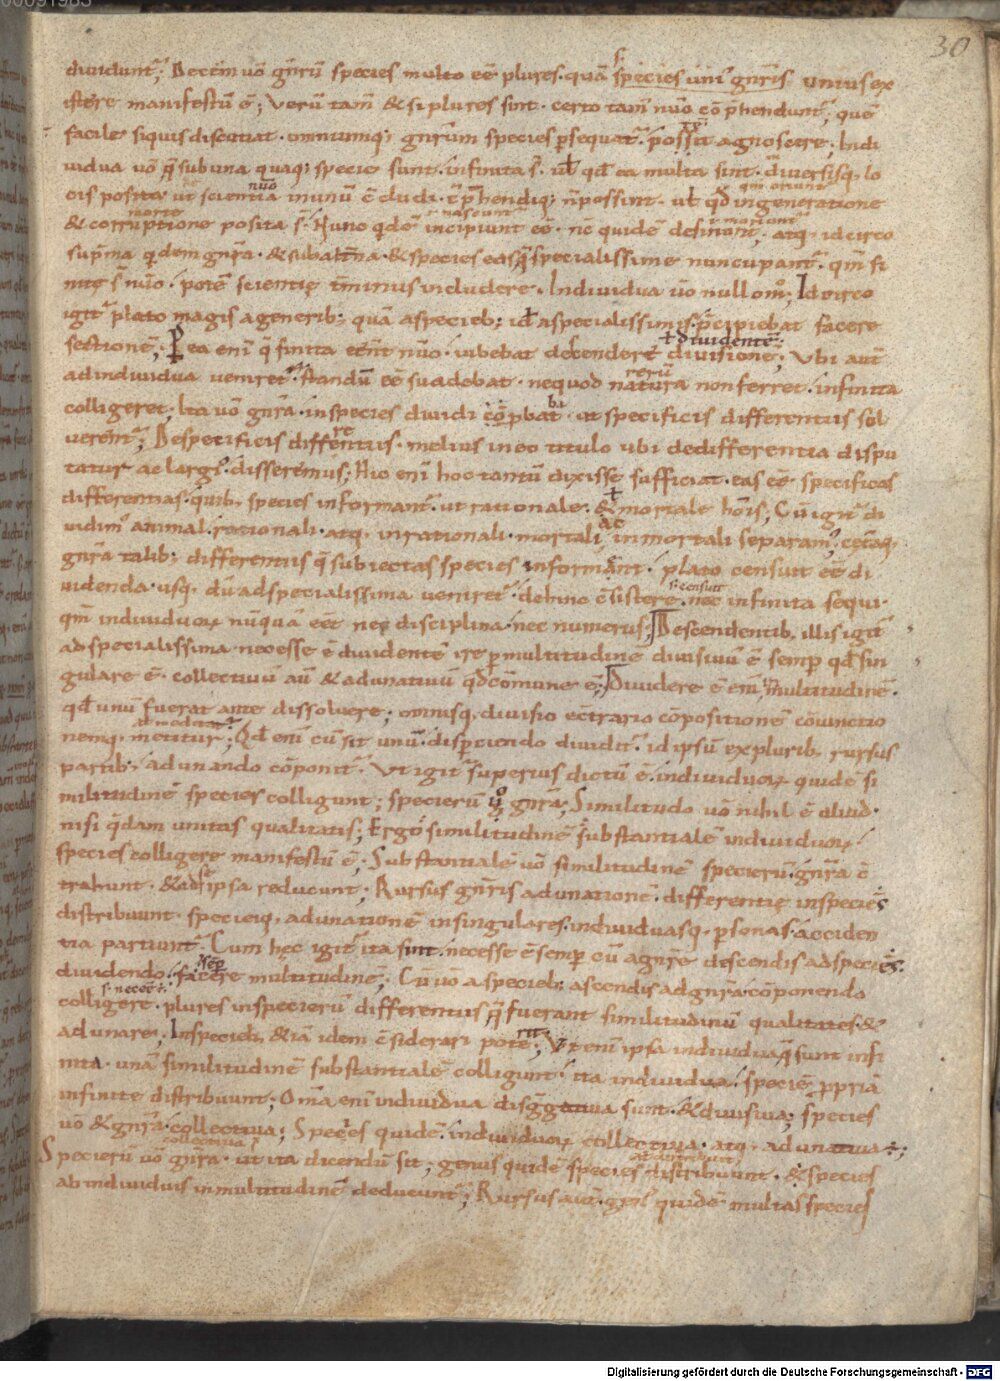 30
diuidunt᷑; Decem̅ uo̅ gn̅ru̅ species multo ee̅ plures · qua̅ species uni᷑ gn̅eris unius ex
istere manifestu̅ e̅; Veru̅ tam̅ & si plures sint · certo tam̅ nu̅o co̅p̅hendunt᷑; que̅
facile siquis discutiat · omniumq; gn̅rum species p̲sequat᷑ · possit agnoscere; Indi
uidua uo̅ q̅ sub una quaq; specie sunt · infinita s̅ · ul̅ qd̅ ea multa sint · diuersisq; lo
cis posita ut scientia inunu̅ c̅cludi · c̅p̅hendiq; n̅ possint · ul̅ qd̅ in generatione
& corruptione posita s̅ · Nunc qde̅ incipiunt ee̅ · nc̅ quide̅ desinunt; atq; idcirco
sup̅ma qdem gn̅ra · & subalt̅na · & species eas q̅ specialissime nuncupant᷑ · qm̅ fi
nite s̅ nu̅o · pote̅ scientie t̅minus includere · Indiuidua uo̅ nullom̊; Idcirco
igit᷑ plato magis a generib; qua̅ a specieb; id̅ a specialissimis p̅cipiebat facere
sectione̅; P̲ ea eni̅ q̅ finita een̅t nu̅o · iubebat descendere diuisione̅; Vbi aut̅
ad indiuidua ueniret᷑ · standu̅ ee̅ suadebat · ne quod natura non ferret · infinita
colligeret; Ita uo̅ gn̅ra · in species diuidi co̅p̲bat · ut specificis differentiis sol
uerent᷑; De specificis differentiis · melius in eo titulo ubi de differentia dispu
tatur ac largi᷑ · disseremus; Hic eni̅ hoc tantu̅ dixisse sufficiat · eas ee̅ specificas
differentias · quib; species informant᷑ · ut rationale · & mortale hois̅; Cu̅ igit᷑ di
uidim᷑ animal · rationali · atq; inrationali · mortali inmortali separam᷑, cet̅aq;
gn̅ra talib; differentiis q̅ subiectas species informant · plato censuit ee̅ di
uidenda · usq; du̅ ad specialissima ueniret᷑ · dehinc c̅sistere · nec infinita sequi ·
qm̅ indiuiduoꝝ nu̅qua̅ ee̅t nec disciplina · nec numerus; Descendentib; illis igit᷑
ad specialissima · necesse e̅ diuidente̅ ire p̲ multitudine̅ diuisiuu̅ e̅ semp̲ qd̅ sin
gulare e̅ · collectiuu̅ au̅ & adunatiuu̅ qd̅ co̅mune e̅; Diuidere e̅ eni̅ multitudine̅ ·
qd̅ unu̅ fuerat ante dissoluere; omnisq; diuisio e contrario co̅positione̅ co̅iunctio
nemq; metitur; Qd̅ eni̅ cu̅ sit unu̅ · disp̲ciendo diuidit᷑ · id ipsu̅ ex plurib; rursus
partib; adunando co̅ponit᷑ · Vt igit᷑ superius dictu̅ e̅ · indiuiduoꝝ quide̅ si
militudine̅ species colligunt; specieru̅ ů gn̅ra; Similitudo uo̅ nihil e̅ aliud ·
nisi q̅dam unitas qualitatis; Ergo similitudine̅ substantiale̅ indiuiduoꝝ
species colligere manifestu̅ e̅; Substantiale̅ uo̅ similitudine̅ specieru̅ · gn̅ra c̅
trahunt · & ad se ipsa reducunt; Rursus gn̅ris adunatione̅ · differentie in species
distribuunt · specieiq; adunatione̅ in singulares · indiuiduasq; p̲sonas · acciden
tia partiunt᷑ · Cum hec igit᷑ ita sint · necesse e̅ semp̲ cu̅ a gn̅re descendis ad species ·
diuidendo · facere multitudine̅; Cu̅ uo̅ a specieb; ascendis ad gn̅ra · co̅ponendo
colligere · plures in specieru̅ differentiis q̅ fuerant similitudinu̅ qualitates · &
adunare; In specieb; & ia̅ idem c̅siderari potest; Vt eni̅ ipsa indiuidua q̅ sunt infi
nita · una̅ similitudine̅ substantiale̅ colligunt · ita indiuidua · specie̅ p̲pria̅
infinite distribuunt; Om̅a eni̅ indiuidua disgregatiua sunt · & diuisiua; species
uo̅ & gn̅ra · collectiua; Species quide̅ · indiuiduoꝝ collectiua · atq; adunatiua ÷;
Specieru̅ uo̅ gn̅ra · ut ita dicendu̅ sit; genus quide̅ species distribuunt · & species
ab indiuiduis in multitudine̅ deducunt᷑; Rursus aut̅ · gen᷑ quide̅ multas species
Digitalisierung gefördert durch die Deutsche Forschungsgemeinschaft - DFG